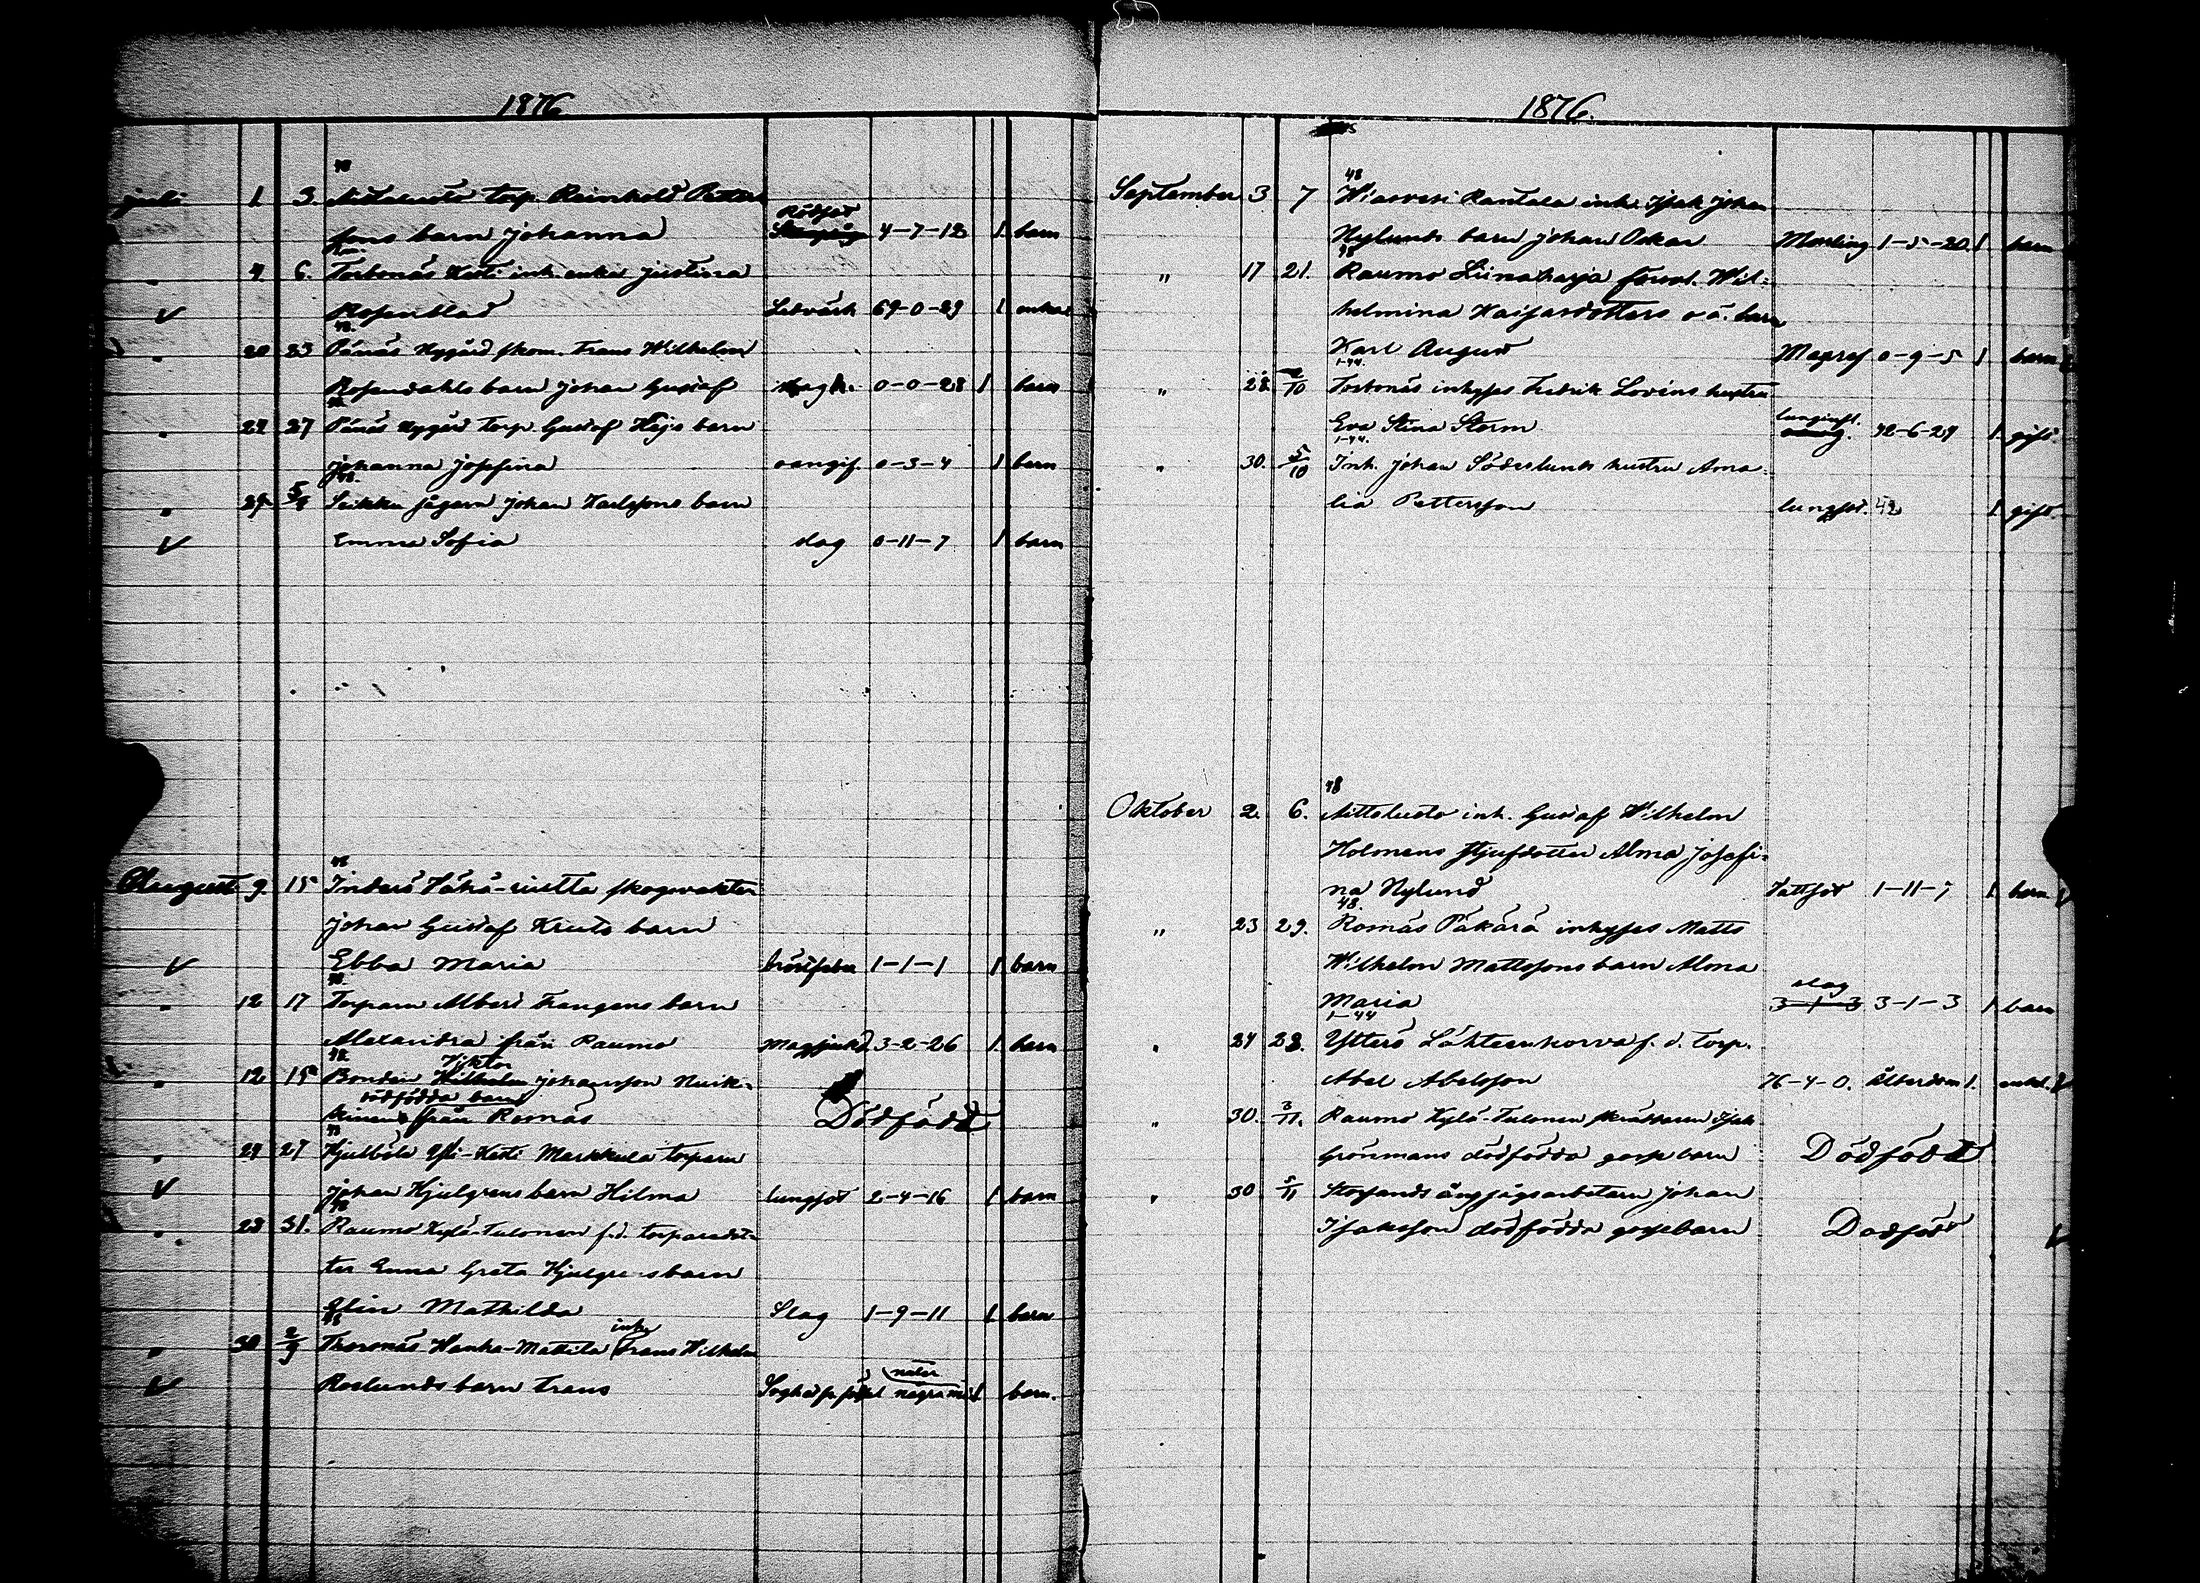 1876
48
juli 1 3. Aittaluoto torp. Reinhold Petters
sons barn Johanna Rödsot 4-7-12 1 barn
" 4 6. Torbonäs Kesti inh. enka Justina
Rosenblad Ledvärk 69-0-29 1 enka
48.
" 20 23 Pänäs Nygård skom. Frans Wilhelm
Rosendahls barn Johan Gustaf slag 0-0-28 1 barn
" 24 27 Pänäs Nygård torp. Gustaf Hejs barn
Johanna Josefina oangif. 0-3-4 1 barn
48.
" 29 Seikku sågarn Johan Karlssons barn
Emma Sofia slag 0-11-7 1 barn
48
August 9. 15 Inderö skogvakter
Johan Gustaf Kruts barn
Ebba Maria bröstfeber 1-1-1 1 barn
48.
" 12 17 Torparn Albert Frangens barn
Alexandra från Raumo Magsjukd. 3-2-26 1. barn
48 Viktor
" 12 15 Bonden Wilhelm Johansson
dödfödda barn
från Romäs Dödfödd
48
" 24 27 Hjulböle Yli-Kesti Markkula torparn
Johan Hjulgrens barn Hilma lungsot 2-4-16 1 barn
48
" 28 31. Raumo Kylä-Tulonen f.d. torparedot-
ter Emma Greta Hjulgrens barn
Elin Mathilda Slag 1-9-11 1 barn
48 inh.
" 30 2/9 Thorsnäs Hanka-Mattila Frans Wilhelm
Roslunds barn Frans några 1 barn.
1876.
48
September 3 7 Wiasvesi Rantala inh. Isak Johan
Nylunds barn Johan Oskar Mässling 1-5-20 1 barn
48
" 17 21. Raumo Liinaharja försv. Wil-
helmina Kaisasdotters o.ä. barn
Karl August Magref 0-9-5 1 barn
1-44
" 28. 2/10 Torbonäs inhyses Fredrik Lovéns hustru
Eva Stina Storm lunginfl. 42-6-29 1. gift.
1-44.
" 30. 5/10 Inh. Johan Söderlunds hustru Ama-
lia Pettersson lungsot. 42 1 gift.
48
Oktober 2. 6. Aittaluoto inh. Gustaf Wilhelm
Holmens styfdotter Alma Josefi-
na Nylund Vattsot 1-11-7 1 barn
48.
" 23 29. Romäs Päkärä inhyses Matts
Wilhelm Mattssons barn Alma
slag
Maria 3-1-3 3-1-3 1 barn
1-44
" 24 28. Ytterö Lähteenkorva f.d. torp.
Abel Abelsson 76-4-0. ålderdom 1. enkl.
" 30. 3/11. Raumo Kylä-Tulonen skräddaren Isak
Grönmans dödfödda gosse barn Dödfödd
" 30 5/11 Storsands ångsågsarbetarn Johan
Isaksson dödfödda gossebarn Dödfödd